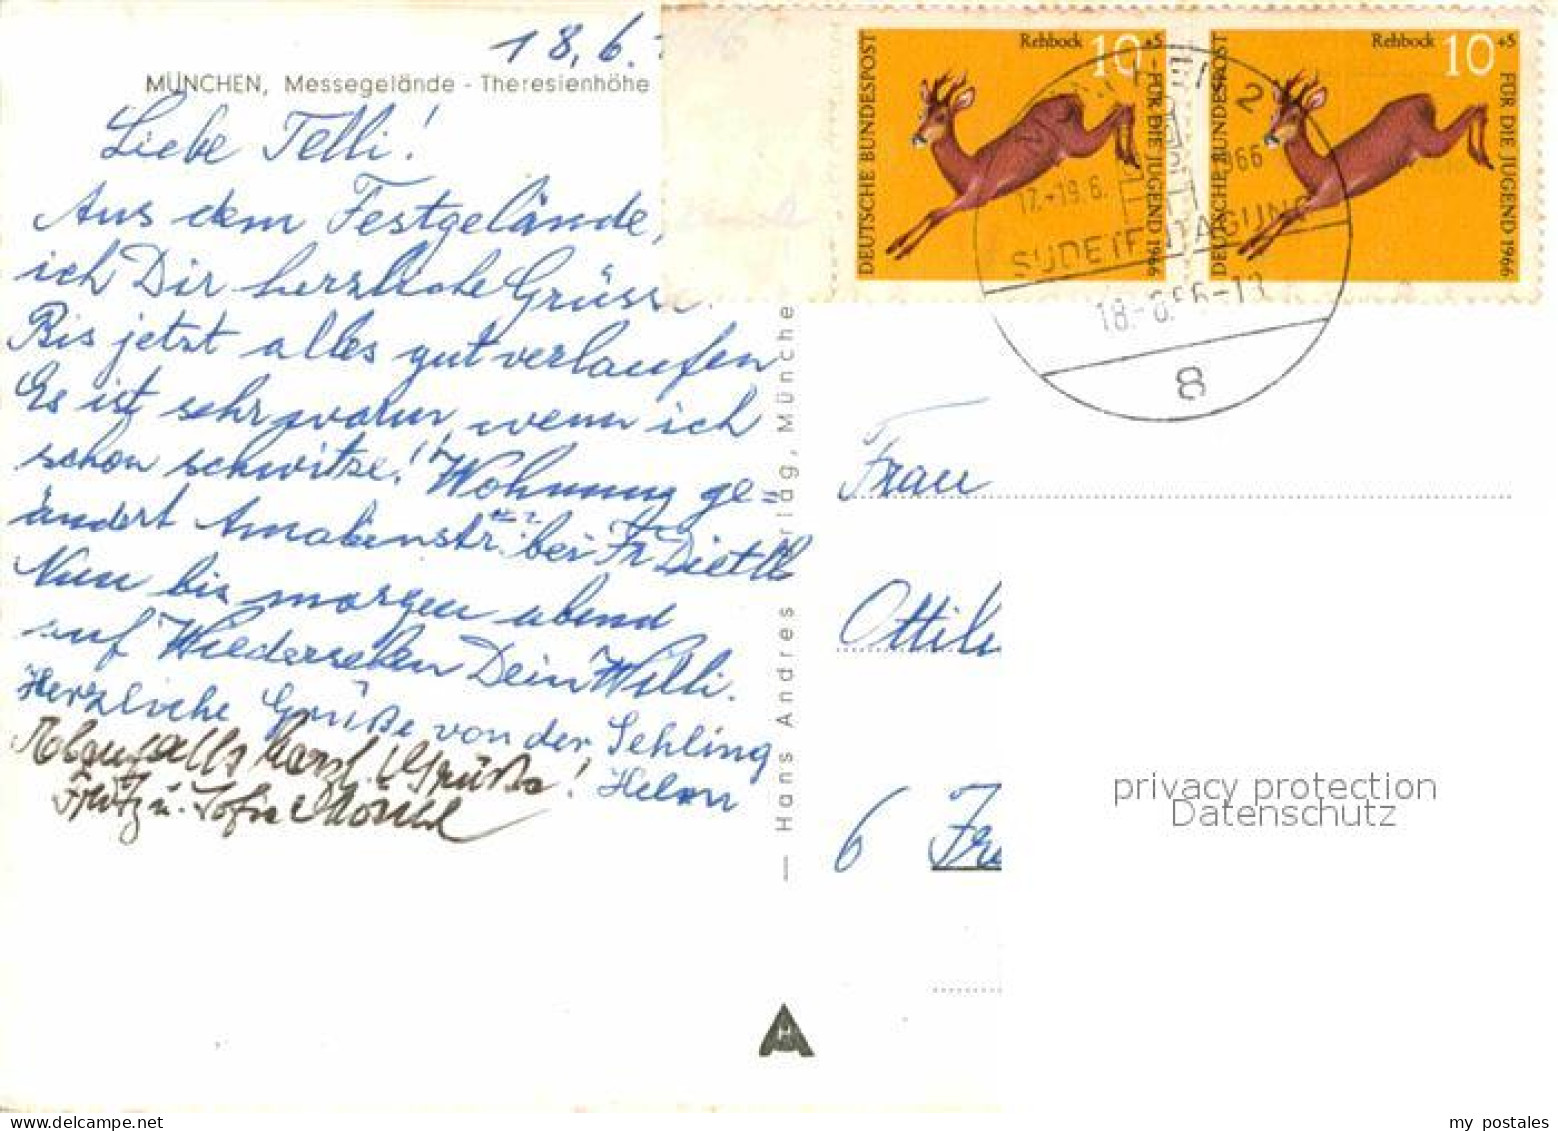 18.6.
MÜNCHEN, Messegelände - Theresienhöhe
Liebe Telli!
Aus dem Festgelände,
ich Dir herzliche Grüsse.
Bis jetzt alles gut verlaufen
Es ist sehr warm, wenn ich
schon schwitze! Wohnung ge=
ändert bei Fr Dietl
Nun bis morgen abend
auf Wiedersehen Dein Willi.
Herzliche Grüße von der Sehling
Helen
Ebenfalls herzl. Grüße!
Fritz u.
Hans Andres Verlag, Münche
Rehbock 10+5
DEUTSCHE BUNDESPOST
FÜR DIE JUGEND 1966
Rehbock 10+5
DEUTSCHE BUNDESPOST
FÜR DIE JUGEND 1966
2
17.-19.6.
18.-6.66-13
8
Frau
Ottili
6 Fra
privacy protection
Datenschutz
my postales